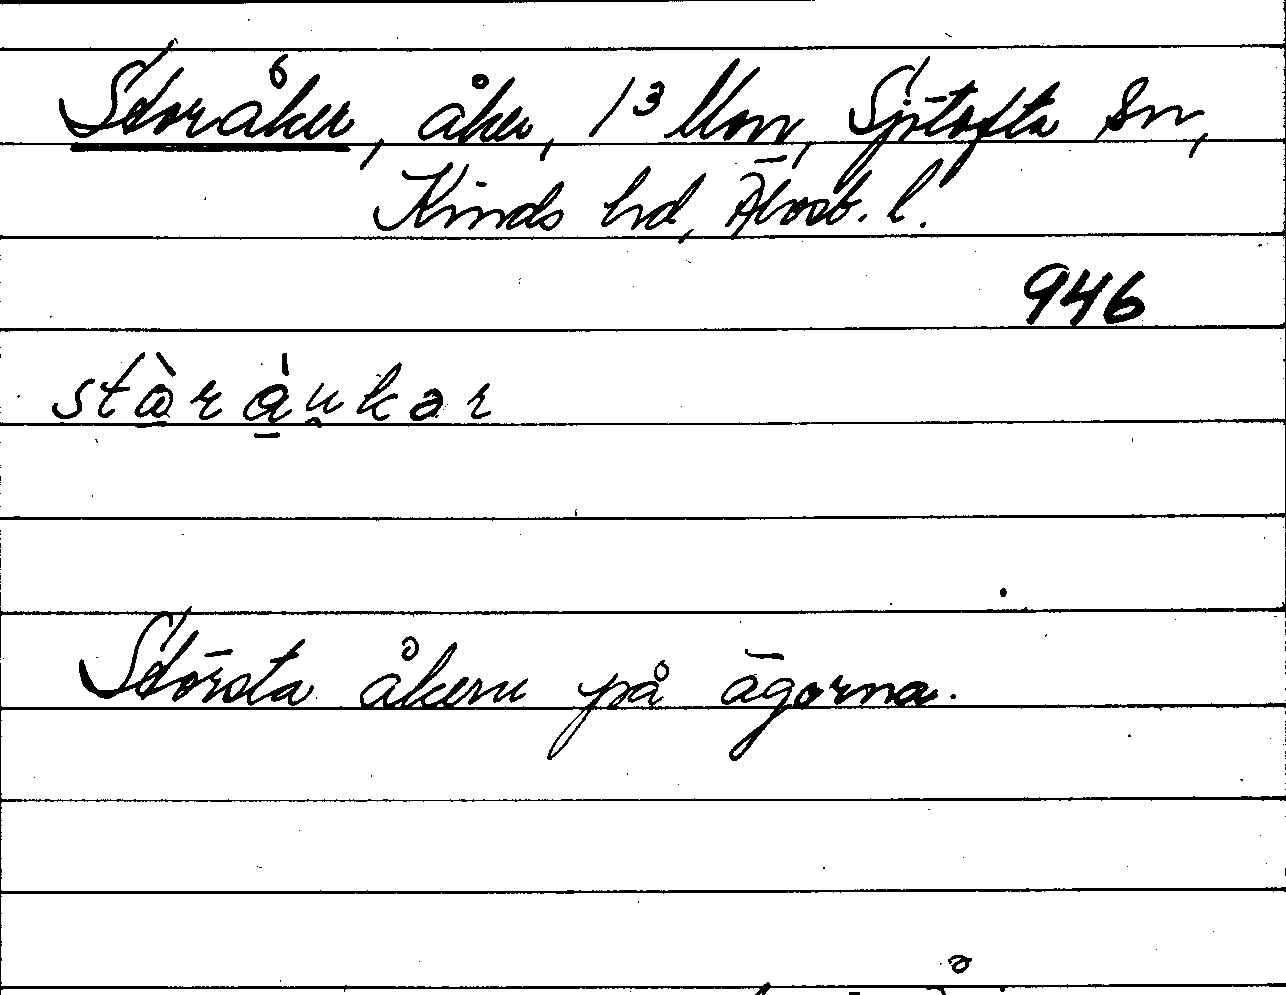 Storåker, åker, 1³ Mon, Sjötofta sn,
Kinds hd, Älvsb. l.
946
stò̱rà̱u̯kər
Största åkern på ägorna.